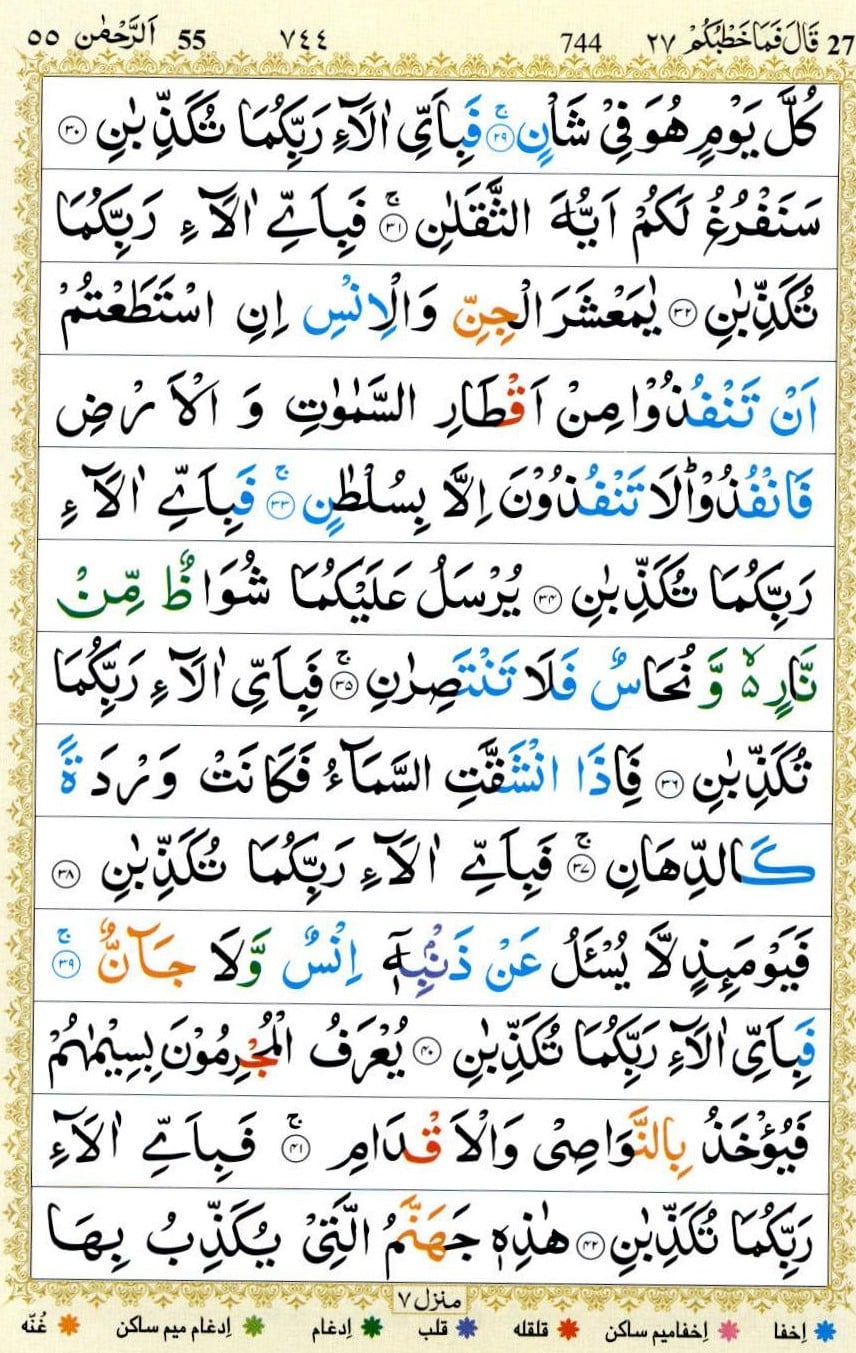 27 قَالَ فَمَا خَطْبُكُمْ ٢٧ 744 ٧٤٤ 55 اَلرَّحْمٰن ٥٥
كُلَّ يَوْمٍ هُوَ فِيْ شَاْنٍ ۚ ﴿٢٩﴾ فَبِاَيِّ اٰلَآءِ رَبِّكُمَا تُكَذِّبٰنِ ﴿٣٠﴾
سَنَفْرُغُ لَكُمْ اَيُّهَ الثَّقَلٰنِ ۚ ﴿٣١﴾ فَبِاَيِّ اٰلَآءِ رَبِّكُمَا
تُكَذِّبٰنِ ﴿٣٢﴾ يٰمَعْشَرَ الْجِنِّ وَالْاِنْسِ اِنِ اسْتَطَعْتُمْ
اَنْ تَنْفُذُوْا مِنْ اَقْطَارِ السَّمٰوٰتِ وَ الْاَرْضِ
فَانْفُذُوْا ؕ لَا تَنْفُذُوْنَ اِلَّا بِسُلْطٰنٍ ۚ ﴿٣٣﴾ فَبِاَيِّ اٰلَآءِ
رَبِّكُمَا تُكَذِّبٰنِ ﴿٣٤﴾ يُرْسَلُ عَلَيْكُمَا شُوَاظٌ مِّنْ
نَّارٍ ۙ۬ وَّ نُحَاسٌ فَلَا تَنْتَصِرٰنِ ۚ ﴿٣٥﴾ فَبِاَيِّ اٰلَآءِ رَبِّكُمَا
تُكَذِّبٰنِ ﴿٣٦﴾ فَاِذَا انْشَقَّتِ السَّمَآءُ فَكَانَتْ وَرْدَةً
كَالدِّهَانِ ۚ ﴿٣٧﴾ فَبِاَيِّ اٰلَآءِ رَبِّكُمَا تُكَذِّبٰنِ ﴿٣٨﴾
فَيَوْمَئِذٍ لَّا يُسْـَٔلُ عَنْ ذَنْۢبِهٖٓ اِنْسٌ وَّلَا جَآنٌّ ۚ ﴿٣٩﴾
فَبِاَيِّ اٰلَآءِ رَبِّكُمَا تُكَذِّبٰنِ ﴿٤٠﴾ يُعْرَفُ الْمُجْرِمُوْنَ بِسِيْمٰىهُمْ
فَيُؤْخَذُ بِالنَّوَاصِيْ وَالْاَقْدَامِ ۚ ﴿٤١﴾ فَبِاَيِّ اٰلَآءِ
رَبِّكُمَا تُكَذِّبٰنِ ﴿٤٢﴾ هٰذِهٖ جَهَنَّمُ الَّتِيْ يُكَذِّبُ بِهَا
منزل ٧
اِخفا اِخفا میم ساکن قلقله قلب اِدغام اِدغام میم ساکن غُنّه